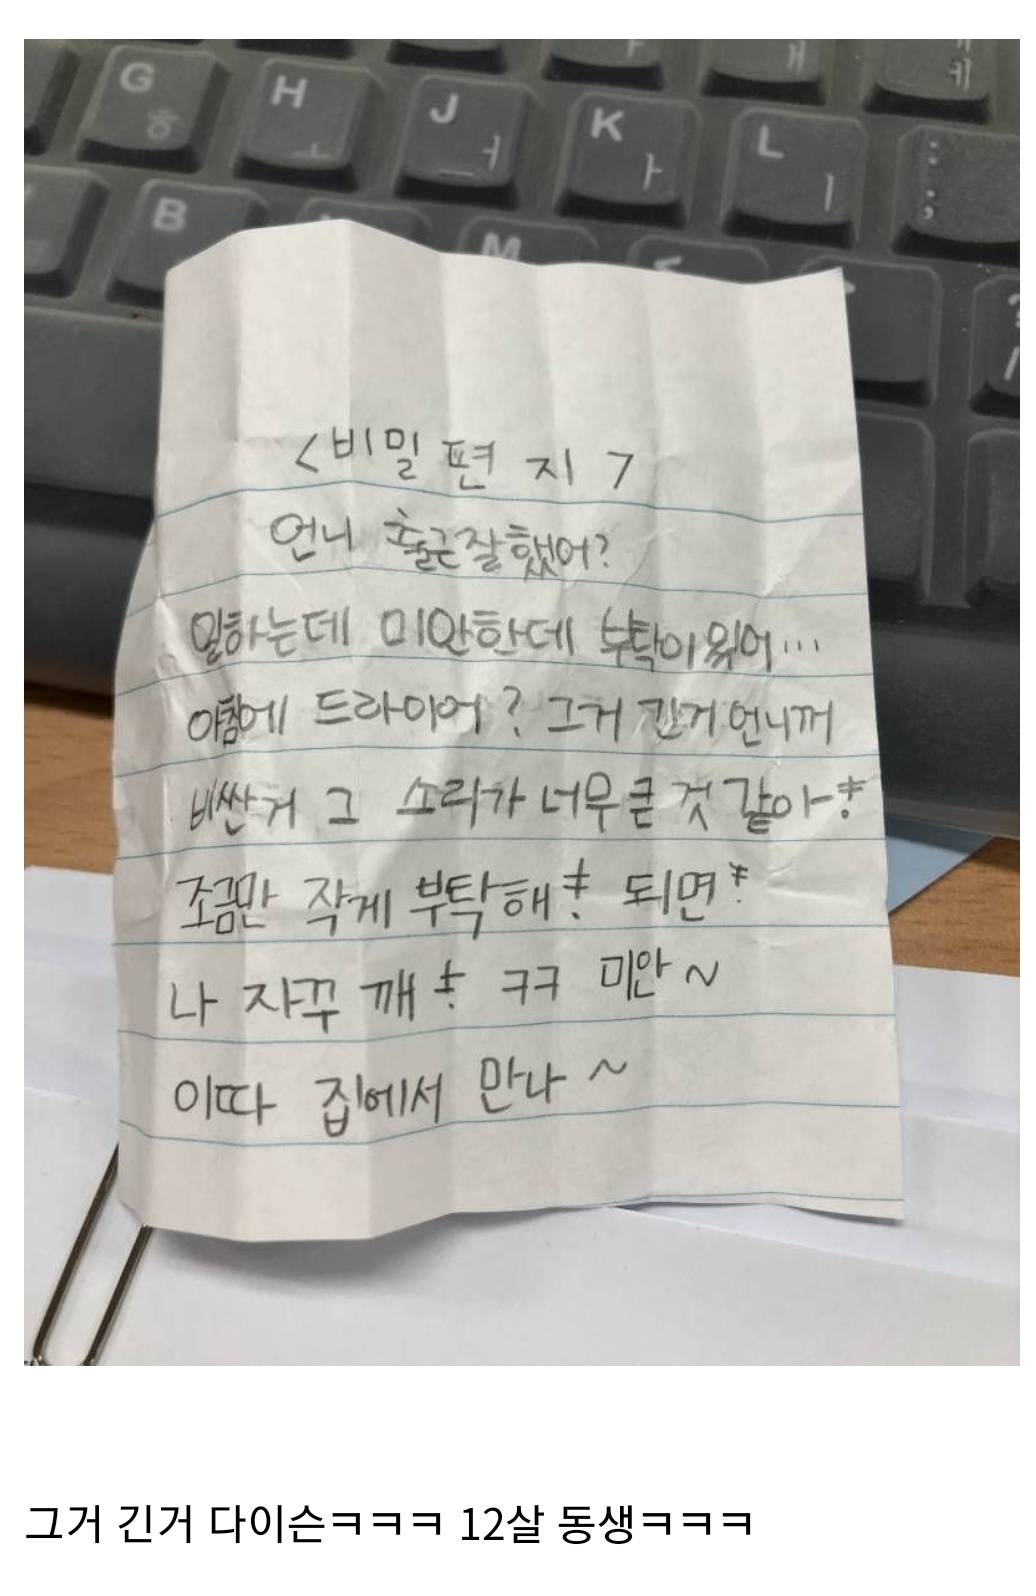 G ㅎ H ㅗ J ㅓ K ㅏ L ㅣ : ;
B M <
? /
<비밀 편 지>
언니 출근잘했어?
일하는데 미안한데 부탁이있어...
아침에 드라이어? 그거 긴거 언니꺼
비싼거 그 소리가 너무 큰 것 같아
조금만 작게 부탁해 되면
나 자꾸 깨 ㅋㅋ 미안~
이따 집에서 만나~
그거 긴거 다이슨ㅋㅋㅋ 12살 동생ㅋㅋㅋ